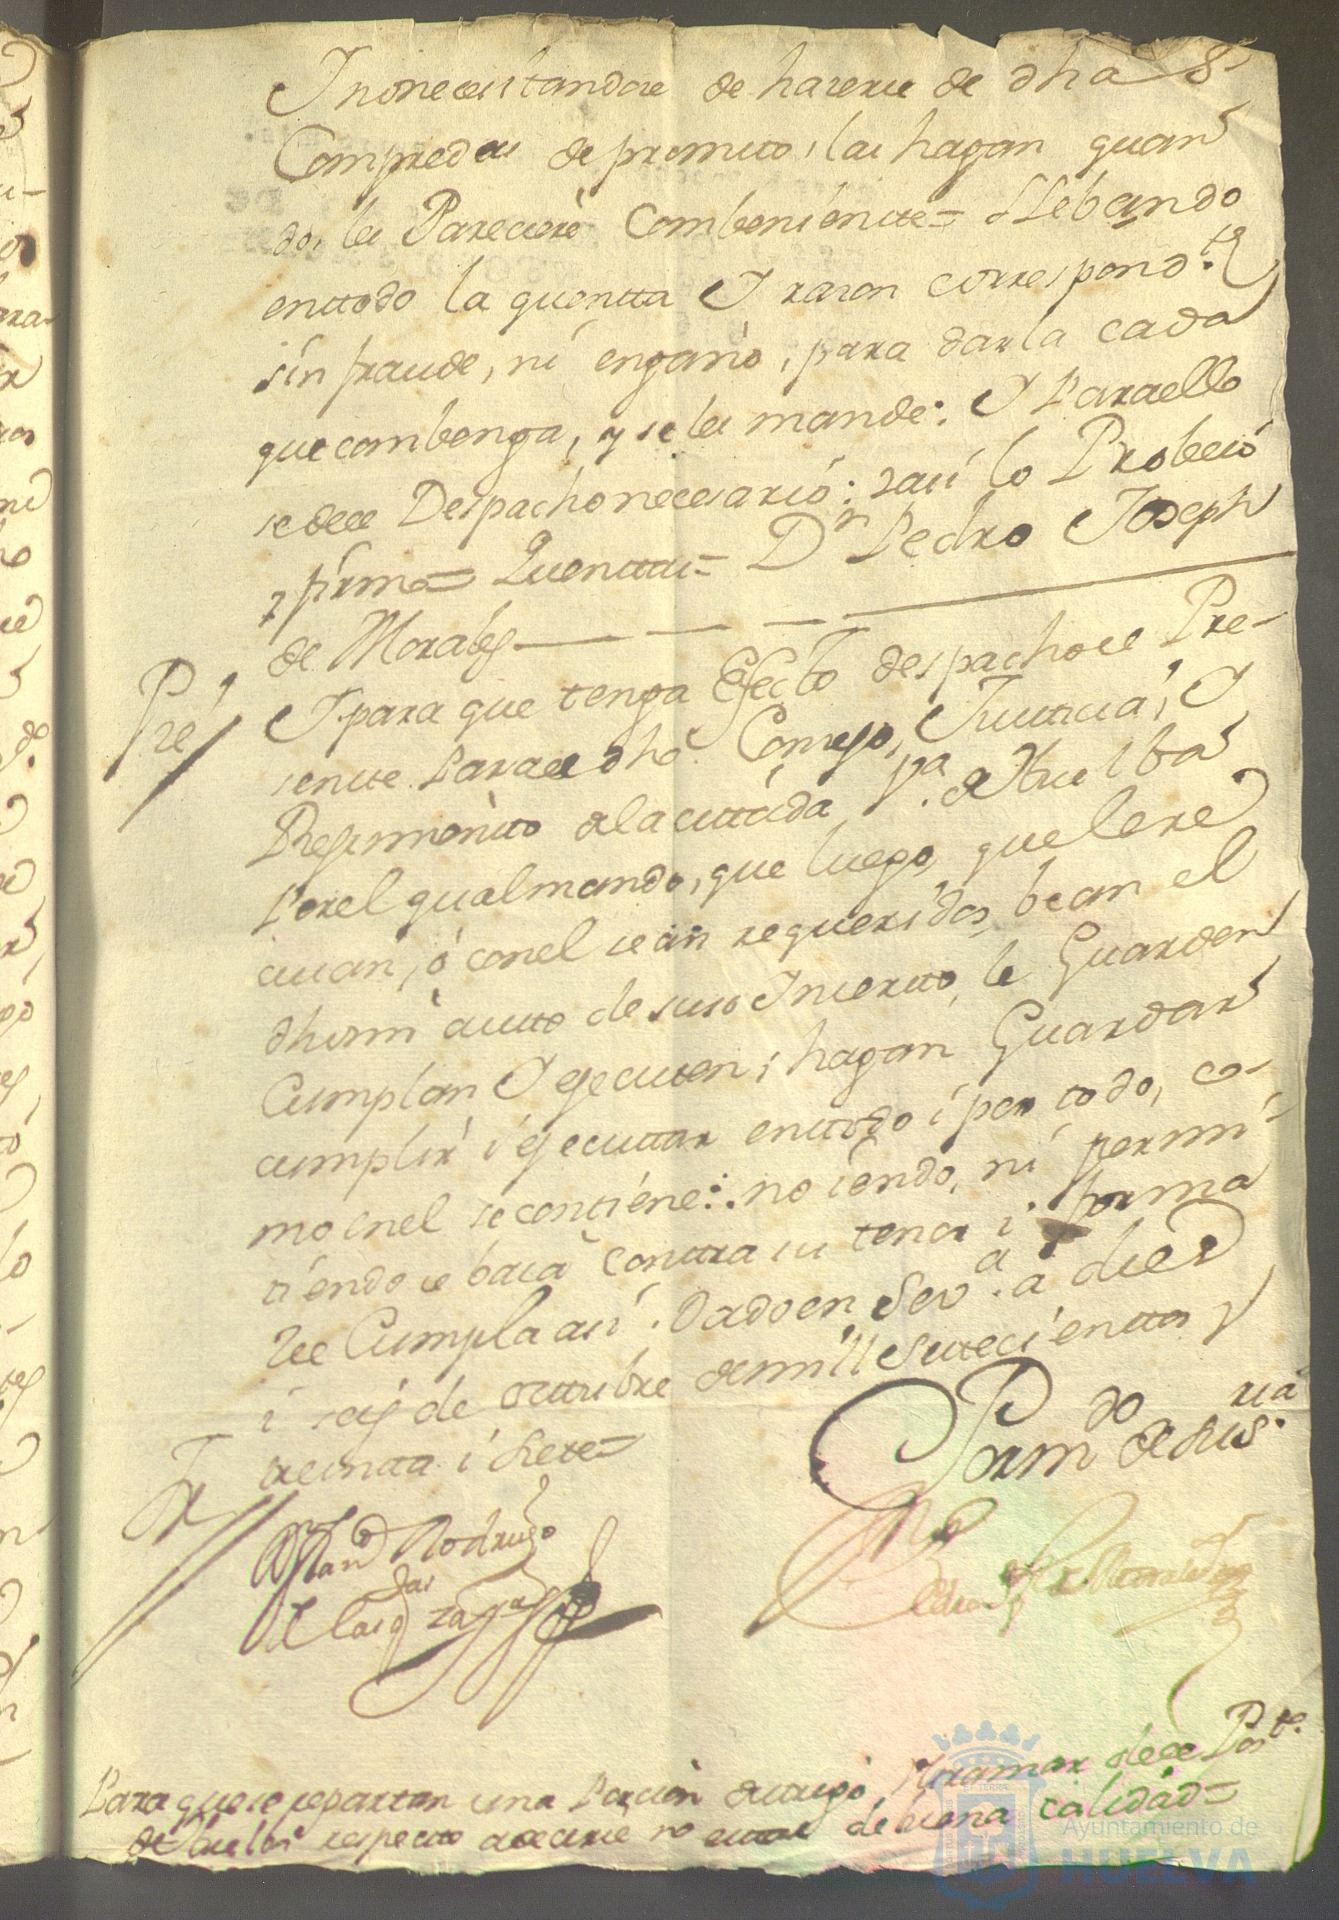 Y no necesitandose de hacerse de dhas
Compredas de promto, las hagan quan
do, les Pareciere Combeniente = Llebando
enttodo la quentta Y razon correspond.te
sin fraude, ni engaño, para darla cada
que combenga, y se les mande: Y Paraello
se dece Despacho necesario: y así lo Probeió
y firmó = Quenttas = Dn Pedro Joseph
de Morales
Y para que tenga Efecto despachose Pre-
sentte Para ese dho Consejo, Justicia, Y
Regimiento de la cittada Va. de Huelba
Por el qual mando, que luego, que le re
ciuan, ó con el sean requeridos, bean el
dho mi autto de suso Inserto, le Guarden
Cumplan Y ejecuten, i hagan Guardar
cumplir i ejecuttar enttodo i por todo, co-
mo en el se contiene: no iendo, ni permi-
tiendo se baia conttra su tenor i forma
Cumpla así. Dado en Seva. a diez
i seis de octtubre de mill Settecienttos y
treintta i siette =
Pre
Para que se repartan una Porción de trigo,
de Huelba respecto a decirse no estar de buena calidad =
Ayuntamiento de
HUELVA